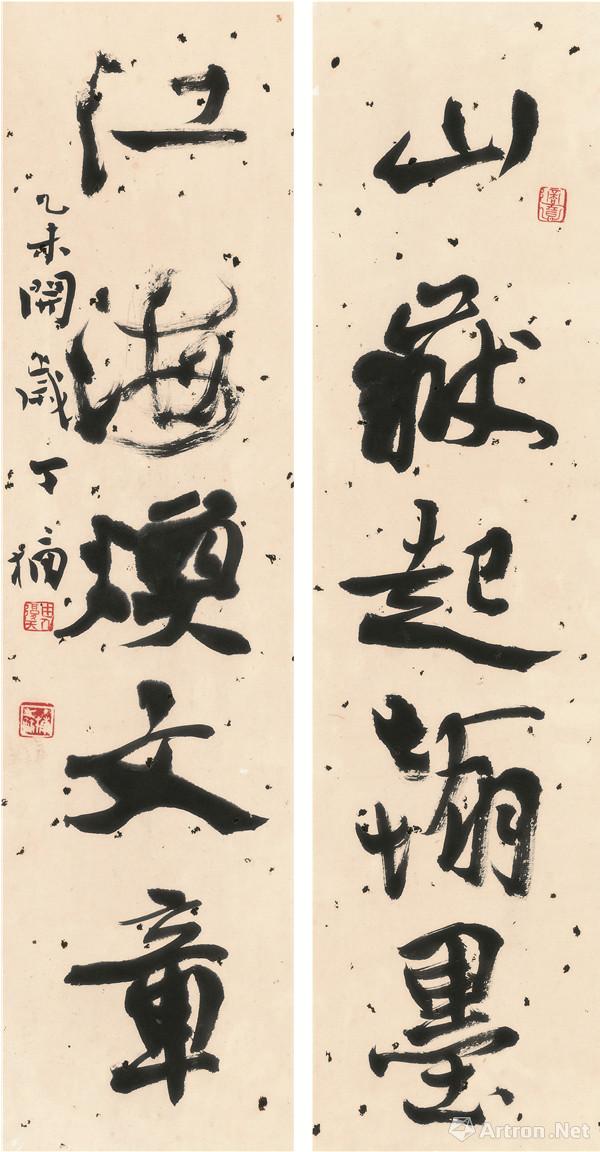 山嶽起翰墨
江海煥文章
乙未開歲
Artron.Net